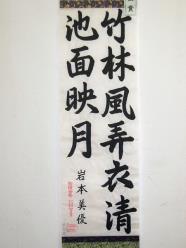 竹林風弄衣清
池面映月
岩本美優